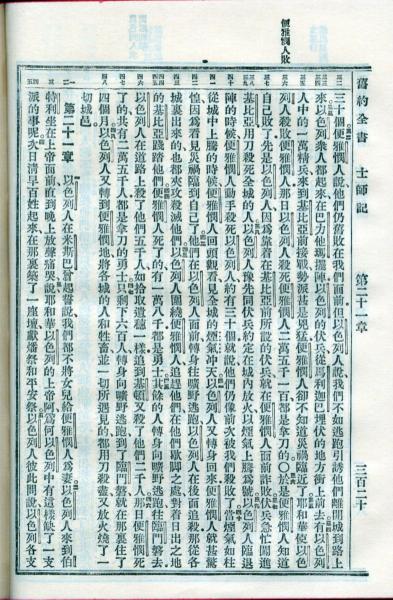 便雅憫人敗
舊約全書 士師記 第二十一章 三百二十
三十個便雅憫人說他們仍舊敗在我們面前但以色列人說我們不如逃跑引誘他們離開城到路上
來以色列衆人都起來在巴力他瑪擺陣以色列的伏兵從馬利迦巴埋伏的地方衝上前去有以色列
人中的一萬精兵來到基比亞前接戰勢派甚是兇猛便雅憫人卻不知道災禍臨近了耶和華使以色
列人殺敗便雅憫人那日以色列人殺死便雅憫人二萬五千一百都是拿刀的〇於是便雅憫人知道
自己敗了先是以色列人因爲靠着在基比亞前所設的伏兵就在便雅憫人面前詐敗伏兵急忙闖進
基比亞用刀殺死全城的人以色列人豫先同伏兵約定在城內放火以煙氣上騰爲號以色列人臨退
陣的時候便雅憫人動手殺死以色列人約有三十個就說他們仍像前次被我們殺敗了當煙氣如柱
從城中上騰的時候便雅憫人回頭觀看見全城的煙氣沖天以色列人又轉身回來便雅憫人就甚驚
惶因爲看見災禍臨到自己了他們在以色列人面前轉身往曠野逃跑以色列人在後面追殺那從各
城裏出來的也都夾攻殺滅他們以色列人圍繞便雅憫人追趕他們在他們歇脚之處對着日出之地
的基比亞踐踏他們便雅憫人死了的有一萬八千都是勇士其餘的人轉身向曠野逃跑往臨門磐去
以色列人在道路上殺了他們五千人如拾取遺穗一樣追到基頓又殺了他們二千人那日便雅憫死
了的共有二萬五千人都是拿刀的勇士只剩下六百人轉身向曠野逃跑到了臨門磐就在那裏住了
四個月以色列人又轉到便雅憫地將各城的人和牲畜並一切所遇見的都用刀殺盡又放火燒了一
切城邑
第二十一章 以色列人在米斯巴曾起誓說我們都不將女兒給便雅憫人爲妻以色列人來到伯
特利坐在上帝面前直到晚上放聲痛哭說耶和華以色列的上帝阿爲何以色列中有這樣缺了一支
派的事呢次日清早百姓起來在那裏築了一座壇獻燔祭和平安祭以色列人彼此問說以色列各支